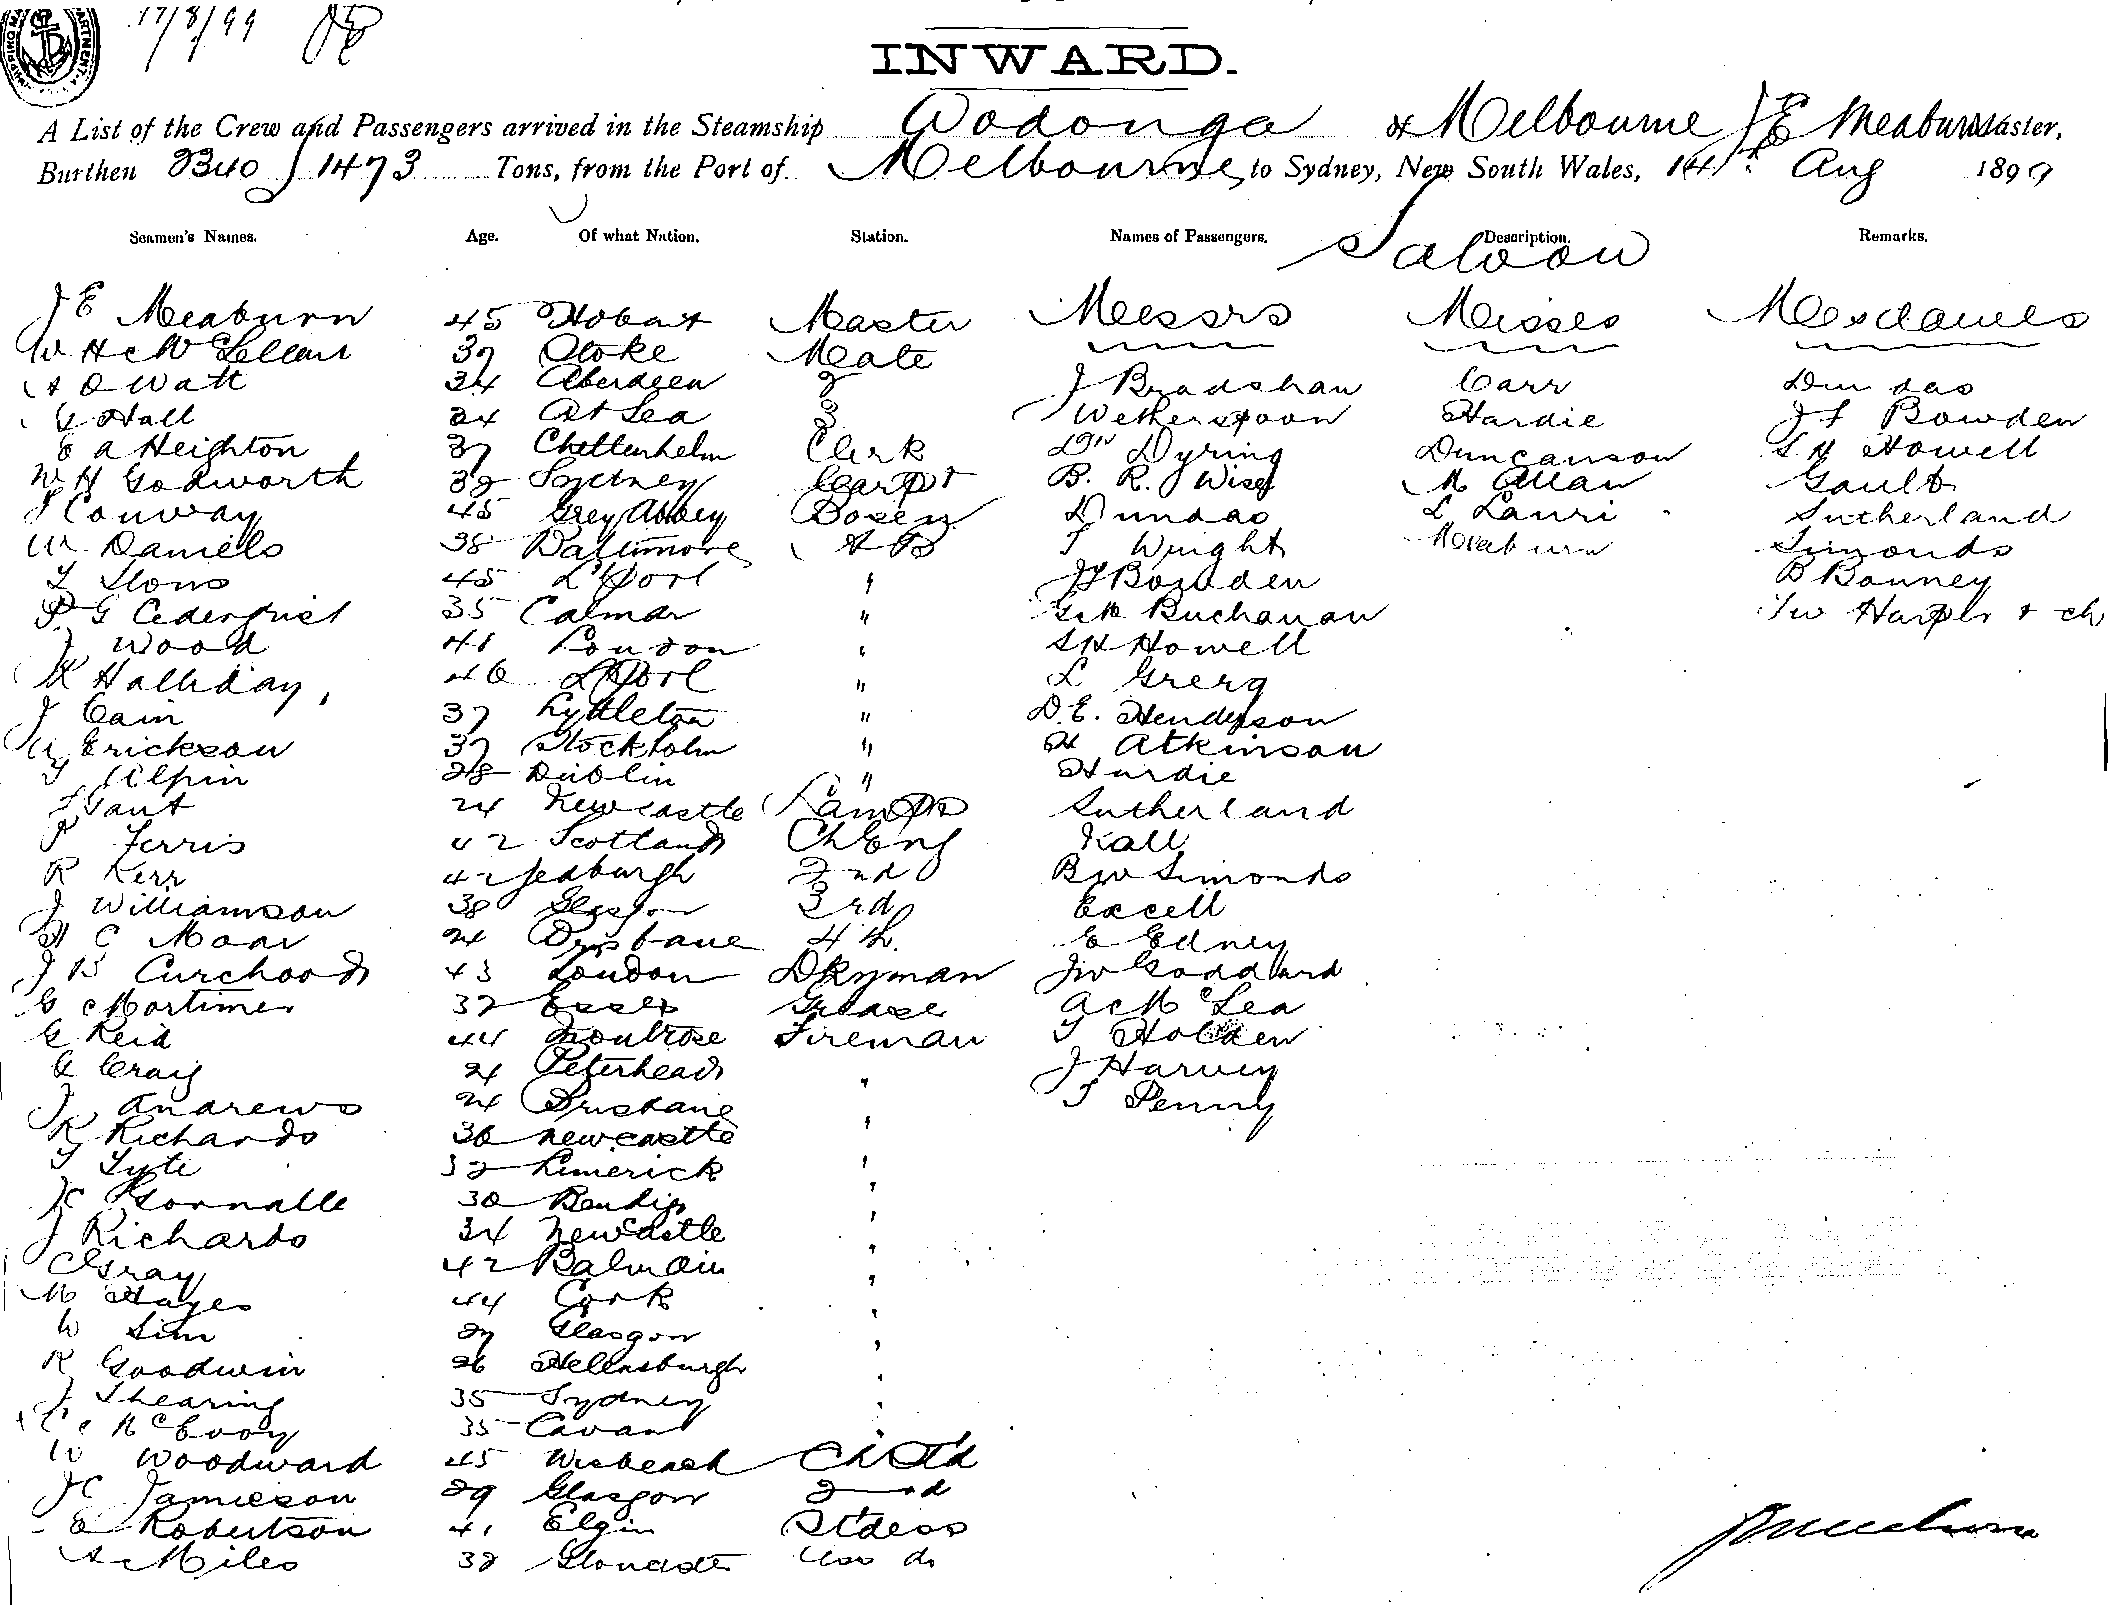 17/8/99
INWARD.
A List of the Crew and Passengers arrived in the Steamship Wodonga of Melbourne J E Meaburn Master,
Burthen 2340 / 1473 Tons, from the Port of Melbourne, to Sydney, New South Wales, 14th Aug 1899
Seamen's Names. Age. Of what Nation. Station. Names of Passengers. Description. Remarks.
Saloon
J E Meaburn 45 Hobart Master Messrs Misses Mesdames
W H McLellan 37 Stoke Mate
A D Watt 34 Aberdeen 2 J Bradshaw Carr Dundas
G Hall 24 At Sea 3 Wetherspoon Hardie J F Bowden
E A Heighton 37 Cheltenhelm Clerk Dr Dyring Duncanson S H Howell
W H Godworth 32 Sydney Carpr B. R. Wise M Allan Gault
J Conway 45 Grey Abbey Bosen Dundas L Lauri Sutherland
W Daniels 38 Baltimore A B T Wright Meaburn Simonds
45 L'Pool " J F Bowden B Bonney
P G Cederquist 35 Calmar " Buchanan Harper & ch
J Wood 41 London " S H Howell
K Halliday, 46 L'Pool " L Greig
J Cain 37 Lyttleton " D. E. Henderson
A Erickson 37 Stockholm " H Atkinson
T Alpin 28 Dublin " Hardie
Gant 24 Newcastle Lamps Sutherland
P Ferris 42 Scotland Ch Eng Kall
R Kerr 42 Jedburgh 2nd B W Simonds
J Williamson 38 Glasgow 3rd Excell
H C Moar 24 Brisbane 4th. E Edney
J B Curchood 43 London Dkyman J W Goddard
G Mortimer 32 Essex Grease A C McLea
G Reid 44 Montrose Fireman T Holden
G Craig 24 Peterhead " J Harvey
J Andrews 24 Brisbane " T Penny
R Richards 36 Newcastle "
T Tyte 32 Limerick "
Gornalle 30 Bendigo "
J Richards 34 Newcastle "
C Gray 42 Balmain "
M Hayes 44 Cork "
W Sim 27 Glasgow "
R Goodwin 26 Hellensburgh "
J Shearing 35 Sydney "
McEvoy 35 Cavan "
W Woodward 45 Wisbeach Ch Std
J C Jamieson 29 Glasgow 2nd
E Robertson 41 Elgin Stdess
A Miles 32 Gloucester Ass do
J E Meaburn